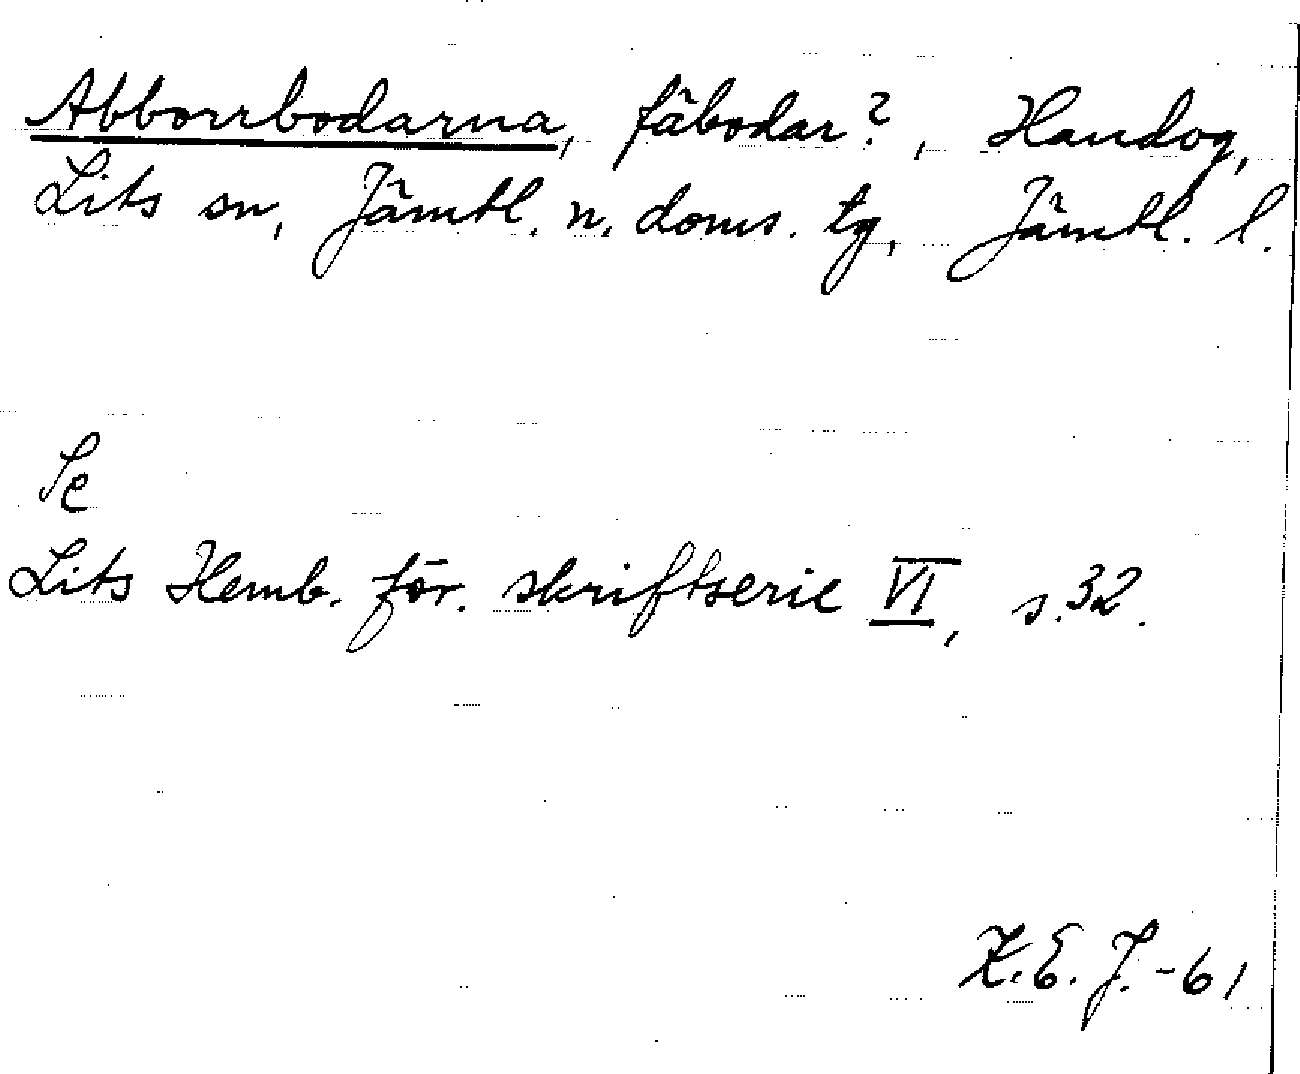 Abborrbodarna, fäbodar?, Handog,
Lits sn, Jämtl. n. doms. tg, Jämtl. l.
Se
Lits Hemb. för. skriftserie VI, s. 32.
K. E. J. -61